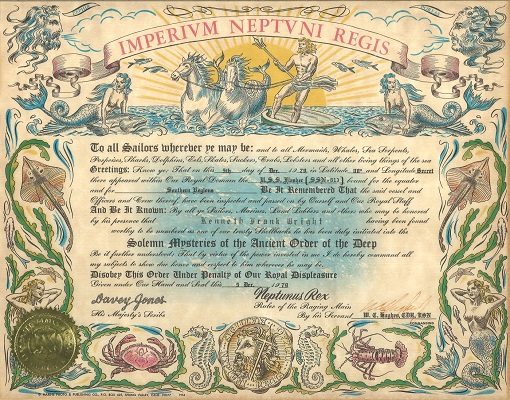 IMPERIVM NEPTVNI REGIS
To all Sailors wherever ye may be: and to all Mermaids, Whales, Sea Serpents,
Porpoises, Sharks, Dolphins, Eels, Skates, Suckers, Crabs, Lobsters and all other living things of the sea
Greetings: Know ye: That on this 5th day of Dec. 1979 in Latitude 00° and Longitude Secret
there appeared within Our Royal Domain the U.S.S. bound for the equator
and for Southern Regions Be It Remembered That the said vessel and
Officers and Crew thereof, have been inspected and passed on by Ourself and Our Royal Staff
And Be It Known: By all ye Sailors, Marines, Land Lubbers and others who may be honored
by his presence that Kenneth Frank Wright having been found
worthy to be numbered as one of our trusty Shellbacks he has been duly initiated into the
Solemn Mysteries of the Ancient Order of the Deep
Be it further understood: That by virtue of the power invested in me I do hereby command all
my subjects to show due honor and respect to him wherever he may be
Disobey This Order Under Penalty of Our Royal Displeasure
Given under Our Hand and Seal this 5 Dec. 1979
Davey Jones
Neptunus Rex
His Majesty's Scribe
Ruler of the Raging Main
By his Servant W. C. Hughes, CDR, USN
COMMANDING